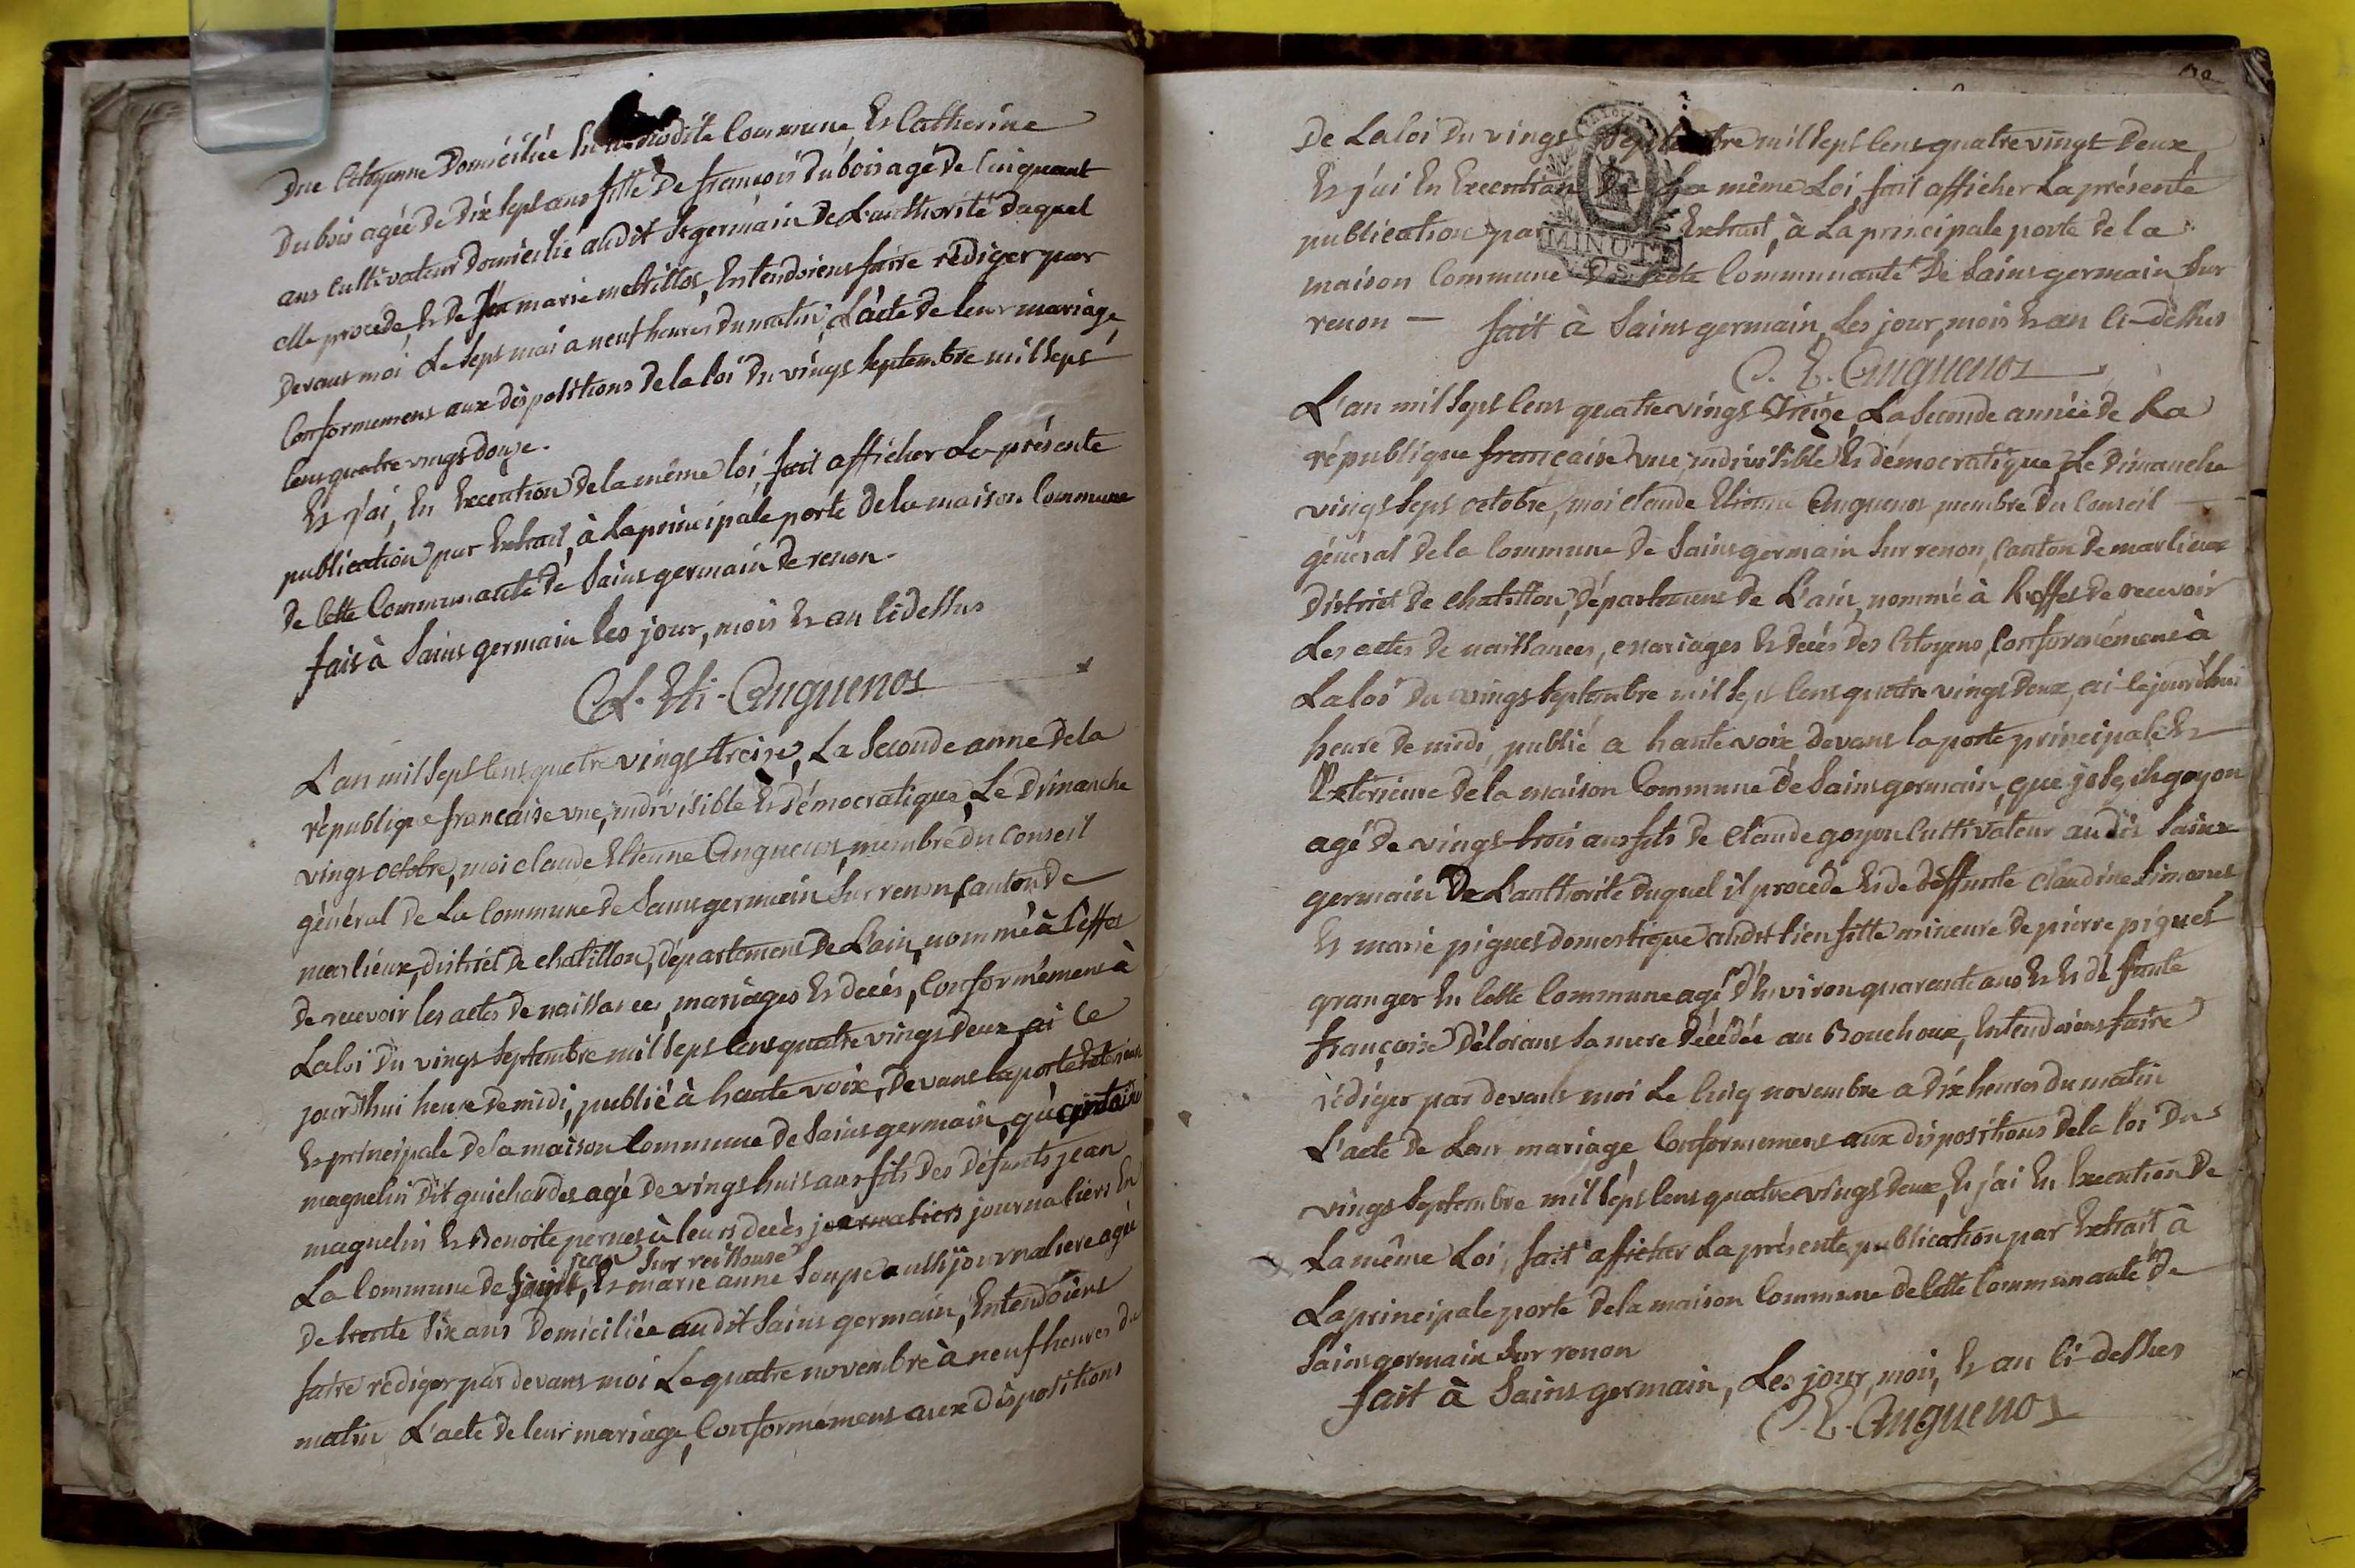 Due Citoyenne Domiciliée En Commune Et Catherine
Dubois agée De Dix Sept ans fille De françois Dubois agé De Cinquant
ans Cultivateur Domicilié audit St germain De L'authorité Duquel
elle procede, Et De marie metrillot, Entendoient faire rédiger par
Devant moi Le Sept mai a neuf heures Du matin, L'acte De leur mariage,
Conformement aux dispositions De la loi Du vingt Septembre mil Sept
Cent quatre vingt Douze.
Et j'ai, En Execution De la même loi, fait afficher La présente
publication par Extrait, à La principale porte De la maison Commune
De Cette Communauté De Saint germain de renon.
fait à Saint germain les jour, mois Et an Ci dessus
Cl. Eti. Anguenot
L'an mil Sept Cent quatre vingt treize, La Seconde anne De la
république francaise une, indivisible Et Démocratique, Le Dimanche
vingt octobre, moi claude Etienne Anguenot, membre Du Conseil
général De La Commune De Saint germain Sur renon Canton De
marlieux, District De chatillon, Département De L'ain, nommé à L'effet
De recevoir les actes De naissances, mariages Et decès, Conformément à
La loi Du vingt Septembre mil Sept Cent quatre vingt Deux, ai Ce
jourd'hui heure De midi, publié à haute voix, Devant la porte Exterieure
Et principale De la maison Commune De Saint germain, qu'
magnelin Dit guichardet agé De vingt huit ans fils Des Défunts jean
magnelin Et Benoite pernet à leurs decès journaliers journaliers En
jean Sur reissouse
La Commune De Saint, Et marie anne Soupe aussi journaliere agée
De trente Six ans Domiciliée audit Saint germain, Entendoient
faire rédiger par devant moi Le quatre novembre à neuf heures du
matin L'acte De leur mariage, Conformément aux Dispositions
De La loi Du vingt Septembre mil Sept Cent quatre vingt Deux,
Et j'ai En Execution De La même Loi, fait afficher La présente
publication par Extrait, à La principale porte De la
MINUT
maison Commune De Cette Communauté De Saint germain Sur
renon — fait à Saint germain, Les jour, mois Et an Ci-dessus
C. E. Anguenot
L'an mil Sept Cent quatre vingt Treize, La Seconde année De La
république francaise une indivisible Et démocratique, Le Dimanche
vingt Sept octobre, moi claude Etienne Anguenot, membre Du Conseil
général De la Commune De Saint germain Sur renon, Canton De marlieux
District De chatillon, Département De L'ain, nommé à L'effet De recevoir
Les actes De naissances, mariages Et decès Des Citoyens, Conformément à
La loi Du vingt Septembre mil Sept Cent quatre vingt Deux, ai Cejourd'hui
heure De midi, publié a haute voix Devant la porte principale Et
Exterieure De la maison Commune De Saint germain, que joseph goyon
agé De vingt trois ans fils De Claude goyon Cultivateur au Dit Saint
germain De L'authorité Duquel il procede Et De Deffunte claudine Simonet
Et marie piquet Domestique audit lieu fille mineure De pierre piquet
granger En Cette Commune agé D'Environ quarante ans Et De Defunte
françoise Delorans Sa mere Décédée au Bouchoux, Entendoient faire
rédiger par devant moi Le Cinq novembre a Dix heures Du matin
L'acte De Leur mariage Conformement aux dispositions De la loi Du
vingt Septembre mil Sept Cent quatre vingt Deux, Et j'ai En Execution De
La même Loi, fait afficher La présente publication par Extrait à
La principale porte De la maison Commune De Cette Communauté De
Saint germain Sur renon
fait à Saint germain, Les jour, mois, Et an Ci-dessus
C. E. Anguenot